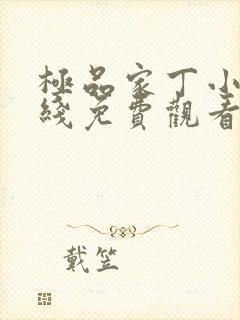 極品家丁小
綫免費觀看
戴笠